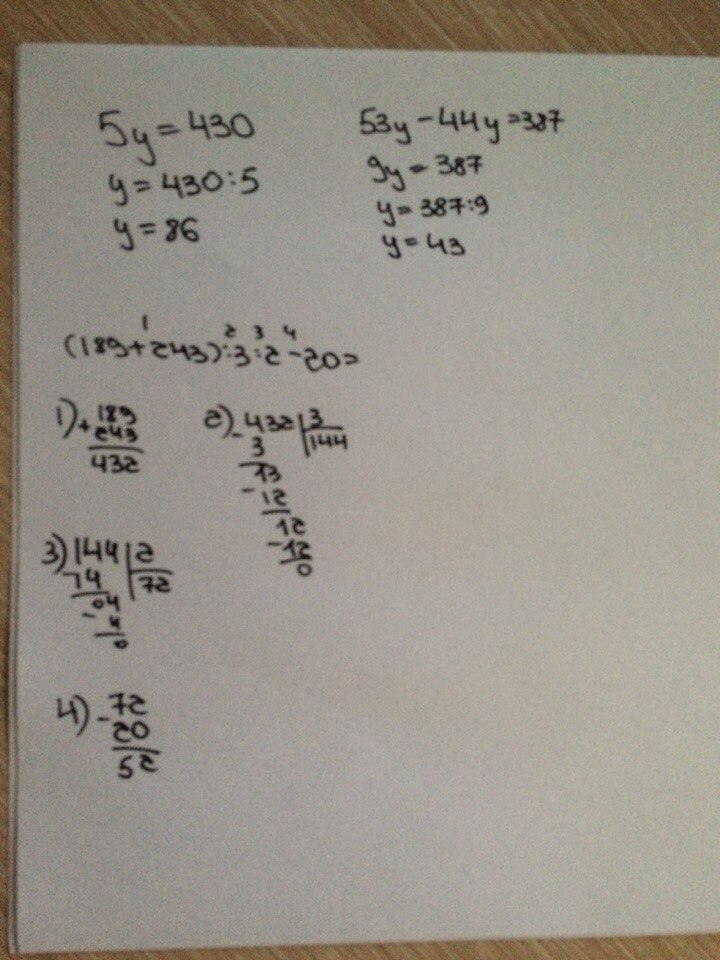 5y = 430
y = 430:5
y = 86
53y - 44y = 387
9y = 387
y = 387:9
y = 43
1 2 3 4
(189+243):3:2-20=
1) + 189
243
432
2) - 432 | 3
3 | 144
13
- 12
12
- 12
0
3) 144 | 2
14 | 72
04
- 4
0
4) - 72
20
52